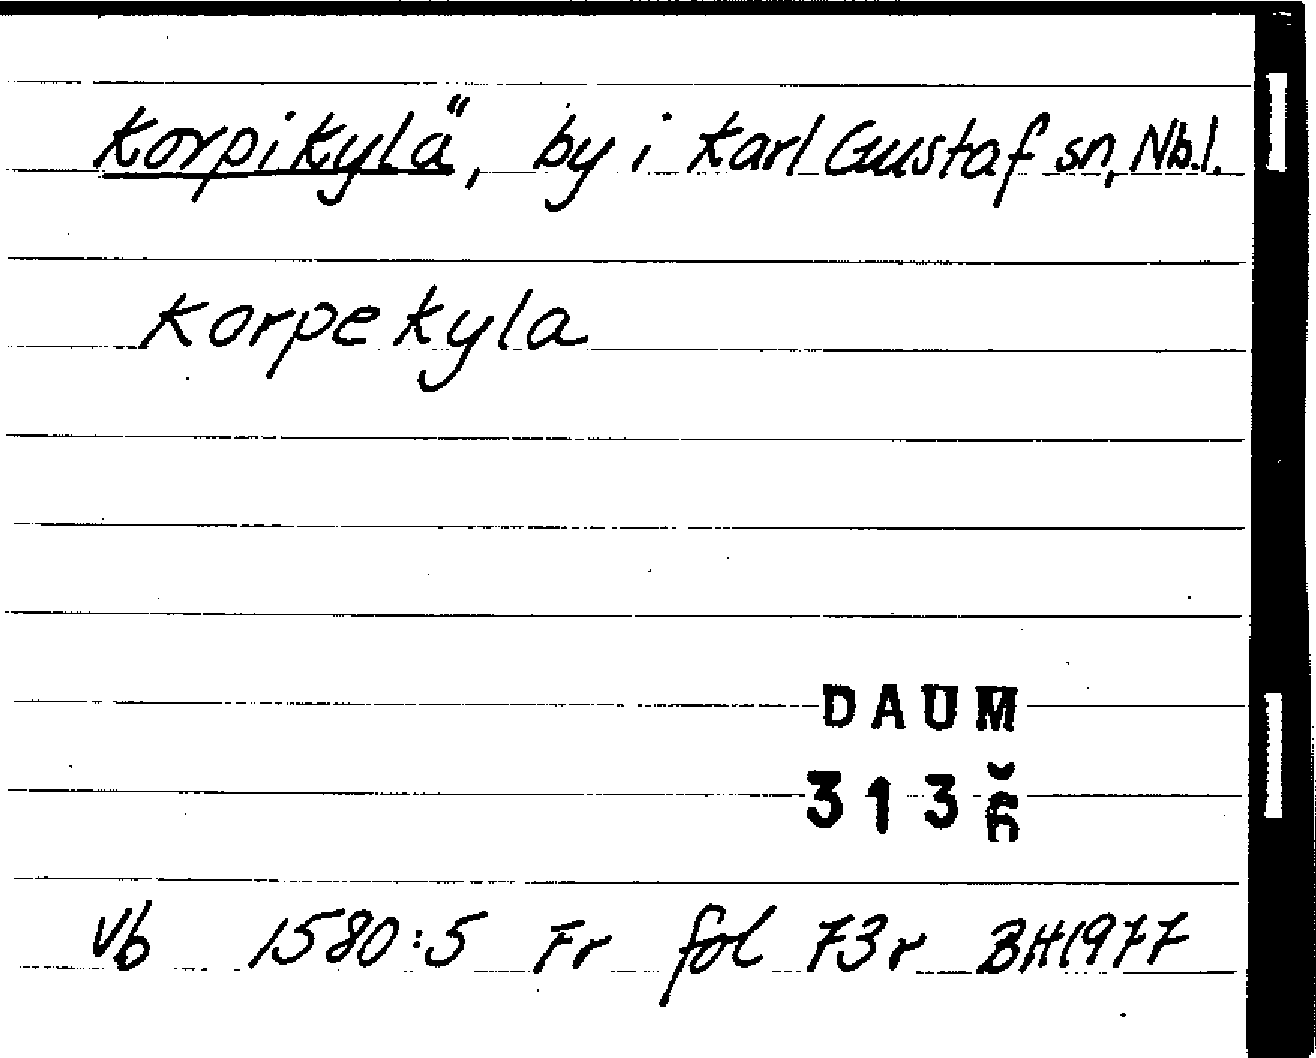 Korpikylä, by i Karl Gustaf sn, Nb.l.
Korpekyla
DAUM
Vb 1580:5 Fr fol 73r BH1977